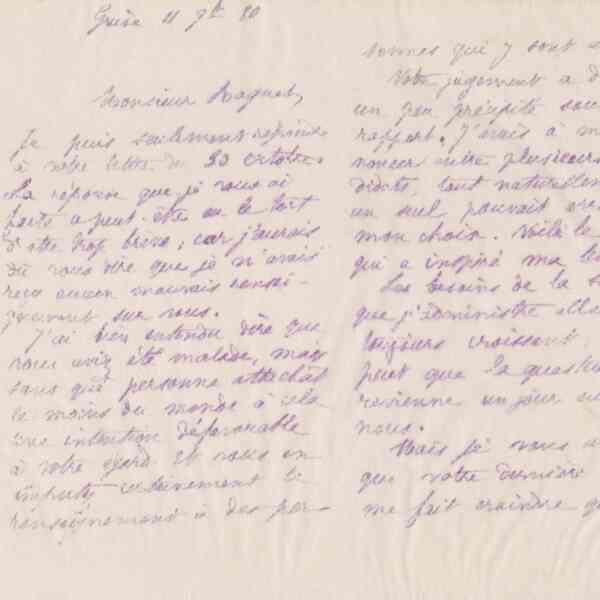 Guise 11 9bre 80
Monsieur Raguet,
Je puis seulement répondre
à votre lettre du 30 octobre.
La réponse que je vous ai
faite a peut-être eu le tort
d'être trop brève, car j'aurais
dû vous dire que je n'avais
reçu aucun mauvais rensei-
gnement sur vous.
J'ai bien entendu dire que
vous aviez été malade, mais
sans que personne attachât
le moins du monde à cela
une intention défavorable
à votre égard. Et vous en
imputez le
renseignement à des per-
sonnes qui y sont
Votre jugement a
un peu précipité sous
rapport. J'avais à me
noncer entre plusieurs
didats, tout naturellement
un seul pouvait
mon choix. Voilà le
qui a inspiré ma
Les besoins de la
que j'administre
toujours croissant,
peut que la question
revienne un jour
nous.
Mais je vous
que votre dernière
me fait craindre